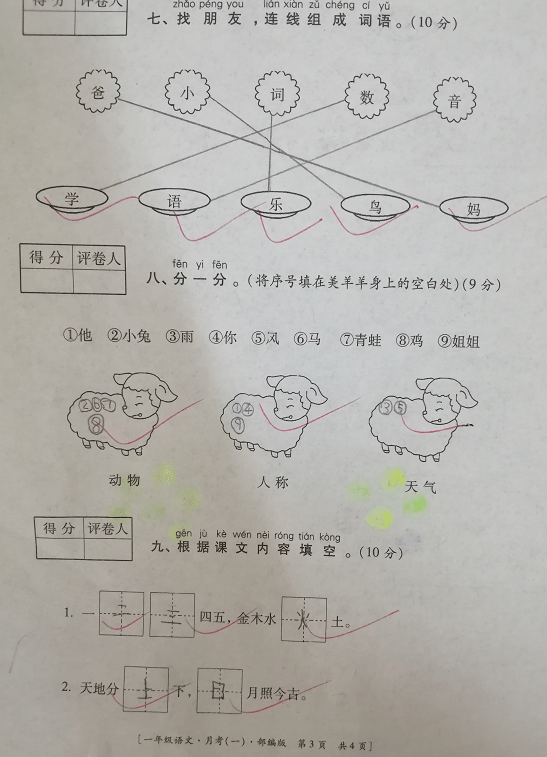 得分 评卷人
zhǎo péng you lián xiàn zǔ chéng cí yǔ
七、找朋友,连线组成词语。(10分)
爸 小 词 数 音
学 语 乐 鸟 妈
得分 评卷人
fēn yi fēn
八、分一分。(将序号填在美羊羊身上的空白处)(9分)
①他 ②小兔 ③雨 ④你 ⑤风 ⑥马 ⑦青蛙 ⑧鸡 ⑨姐姐
②⑥⑦ ①④ ③⑤
⑧ ⑨
动物 人称 天气
得分 评卷人
gēn jù kè wén nèi róng tián kòng
九、根据课文内容填空。(10分)
1. 一二三四五,金木水火土。
2. 天地分上下,日月照今古。
[一年级语文·月考(一)·部编版 第3页 共4页]